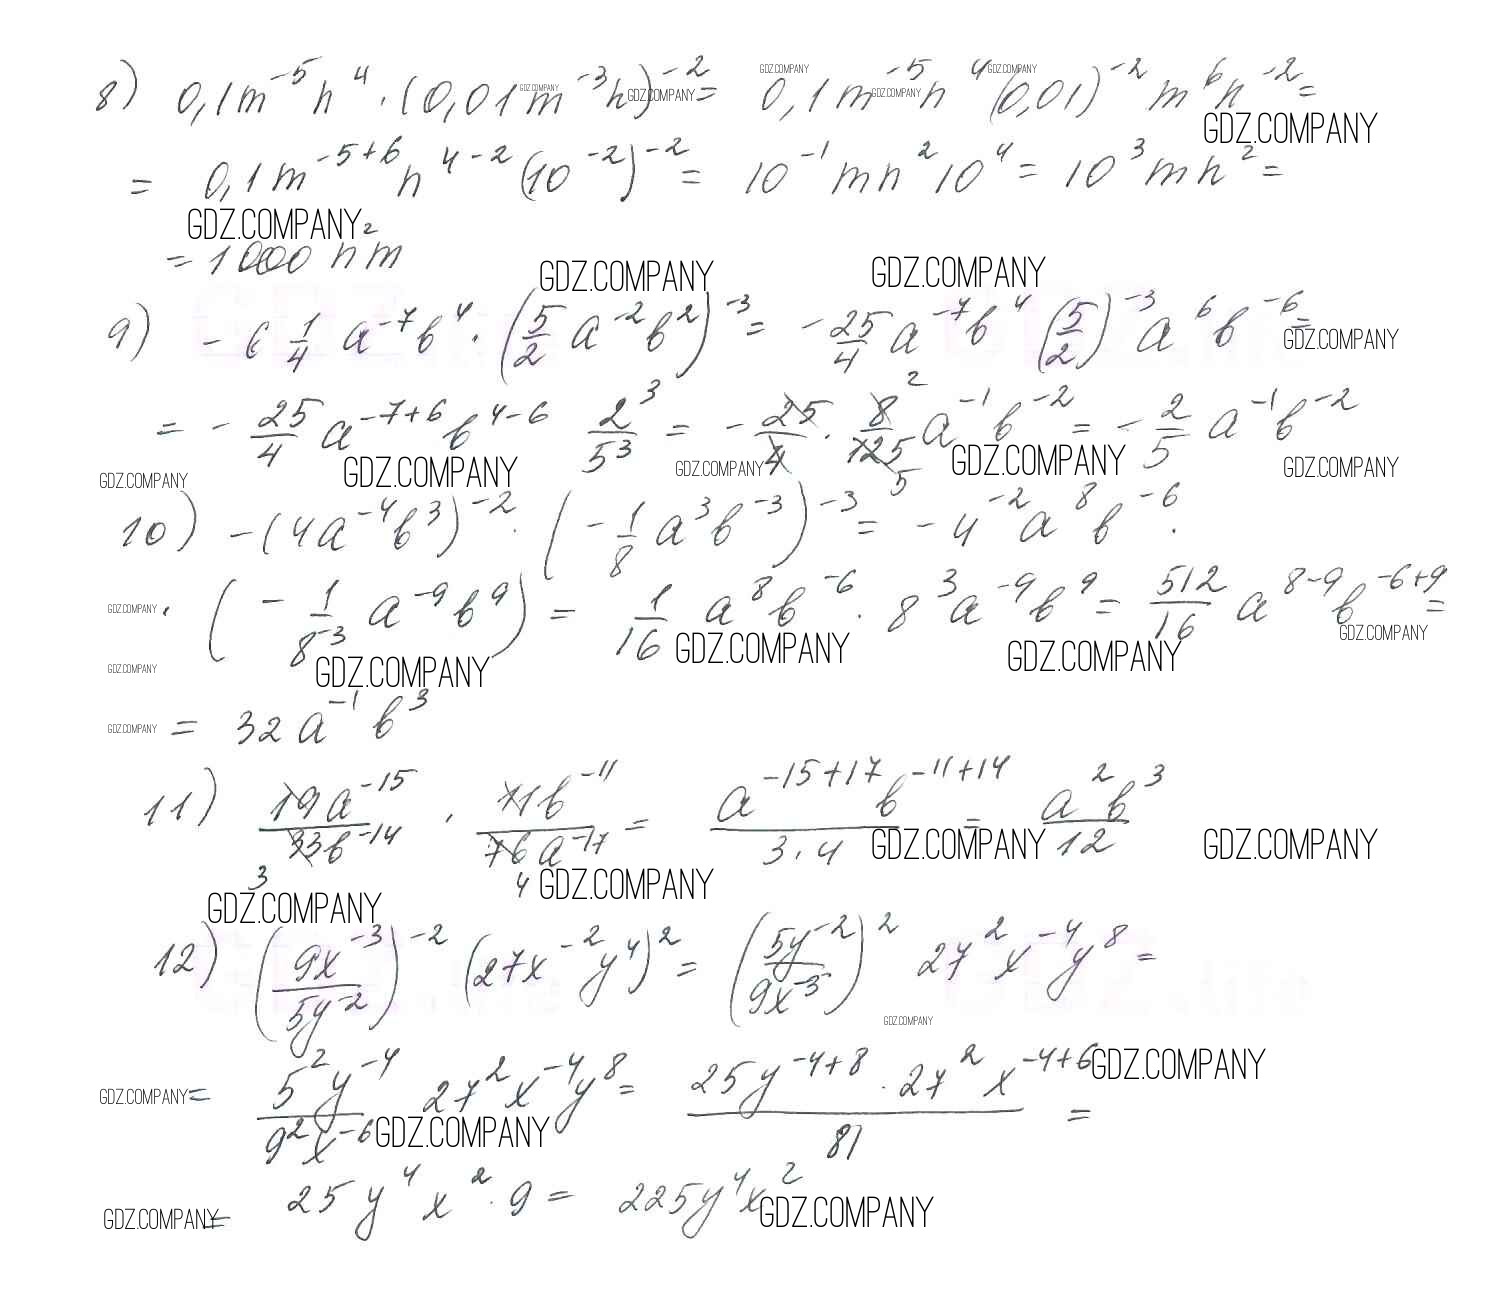 8) 0,1m⁻⁵n⁴ · (0,01m⁻³n)⁻² = 0,1m⁻⁵n⁴ (0,01)⁻² m⁶n⁻² =
= 0,1m⁻⁵⁺⁶ n⁴⁻² (10⁻²)⁻² = 10⁻¹mn²10⁴ = 10³mn² =
= 1000 n²m
9) -6 1/4 a⁻⁷b⁴ · (5/2 a⁻²b²)⁻³ = -25/4 a⁻⁷b⁴ (5/2)⁻³ a⁶b⁻⁶ =
= -25/4 a⁻⁷⁺⁶ b⁴⁻⁶ 2³/5³ = -25/4 · 8/125 a⁻¹b⁻² = -2/5 a⁻¹b⁻²
10) -(4a⁻⁴b³)⁻² · (-1/8 a³b⁻³)⁻³ = -4⁻²a⁸b⁻⁶ ·
· (-1/8⁻³ a⁻⁹b⁹) = 1/16 a⁸b⁻⁶ · 8³a⁻⁹b⁹ = 512/16 a⁸⁻⁹b⁻⁶⁺⁹ =
= 32a⁻¹b³
11) 19a⁻¹⁵/33b⁻¹⁴ · 11b⁻¹¹/76a⁻¹⁷ = a⁻¹⁵⁺¹⁷b⁻¹¹⁺¹⁴/3·4 = a²b³/12
12) (9x⁻³/5y⁻²)⁻² (27x⁻²y⁴)² = (5y⁻²/9x⁻³)² 27²x⁻⁴y⁸ =
= 5²y⁻⁴/9²x⁻⁶ 27²x⁻⁴y⁸ = 25y⁻⁴⁺⁸ · 27²x⁻⁴⁺⁶/81 =
= 25y⁴x² · 9 = 225y⁴x²
GDZ.COMPANY